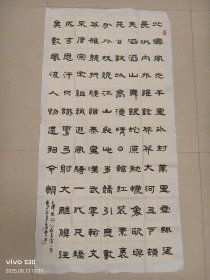 北國風光千里冰封萬里雪飄望
長城內外惟餘莽莽大河上下頓
失滔滔山舞銀蛇原馳蠟象欲與
天公試比高須晴日看紅裝素裹
分外妖嬈江山如此多嬌引無數
英雄競折腰惜秦皇漢武略輸文
采唐宗宋祖稍遜風騷一代天驕
成吉思汗只識彎弓射大雕俱往
矣數風流人物還看今朝
vivo S30
2025.06.13 13:03